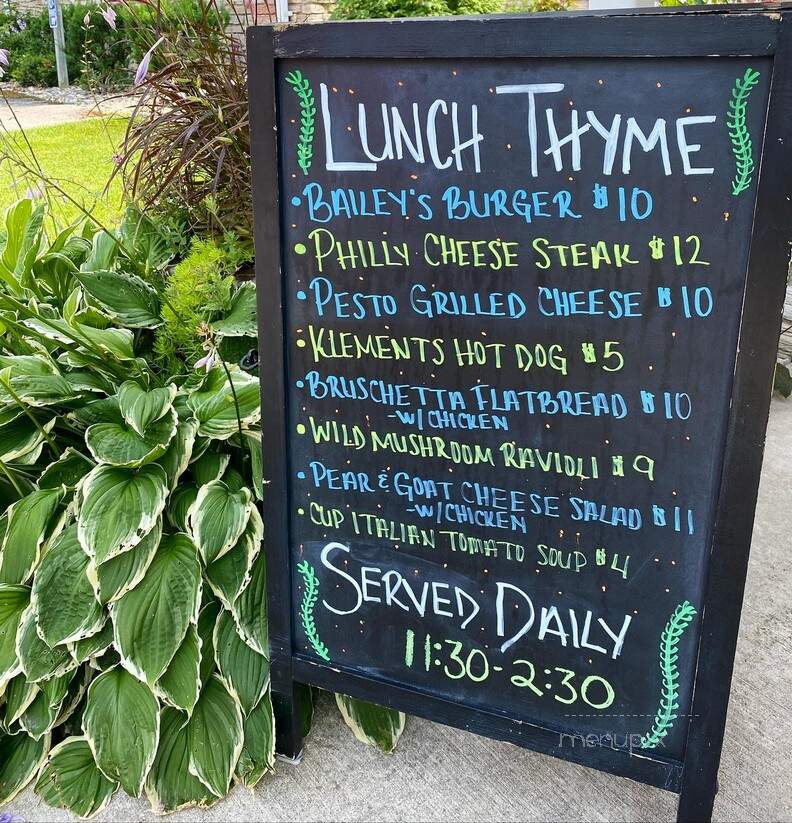 LUNCH THYME
• BAILEY'S BURGER $10
• PHILLY CHEESE STEAK $12
• PESTO GRILLED CHEESE $10
• KLEMENTS HOT DOG $5
• BRUSCHETTA FLATBREAD $10
-W/ CHICKEN
• WILD MUSHROOM RAVIOLI $9
• PEAR & GOAT CHEESE SALAD $11
-W/ CHICKEN
• CUP ITALIAN TOMATO SOUP $4
SERVED DAILY
11:30-2:30
menupix